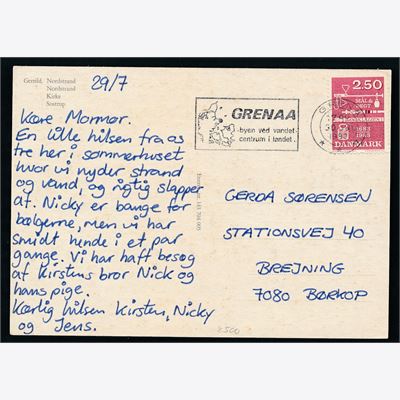 Gerrild, Nordstrand
Nordstrand
Kirke
Sostrup
29/7
Kære Mormor.
En lille hilsen fra os
tre her i sommerhuset
hvor vi nyder strand
og vand, og rigtig slapper
af. Nicky er bange for
bølgerne, men vi har
smidt hende i et par
gange. Vi har haft besøg
af Kirstens bror Nick og
hans pige.
Kærlig hilsen Kirsten, Nicky
og Jens.
GRENAA
-byen ved vandet-
centrum i landet.
2.50
MÅL &
VÆGT
1683
1983
DANMARK
GERDA SØRENSEN
STATIONSVEJ 40
BREJNING
7080 BØRKOP
2500